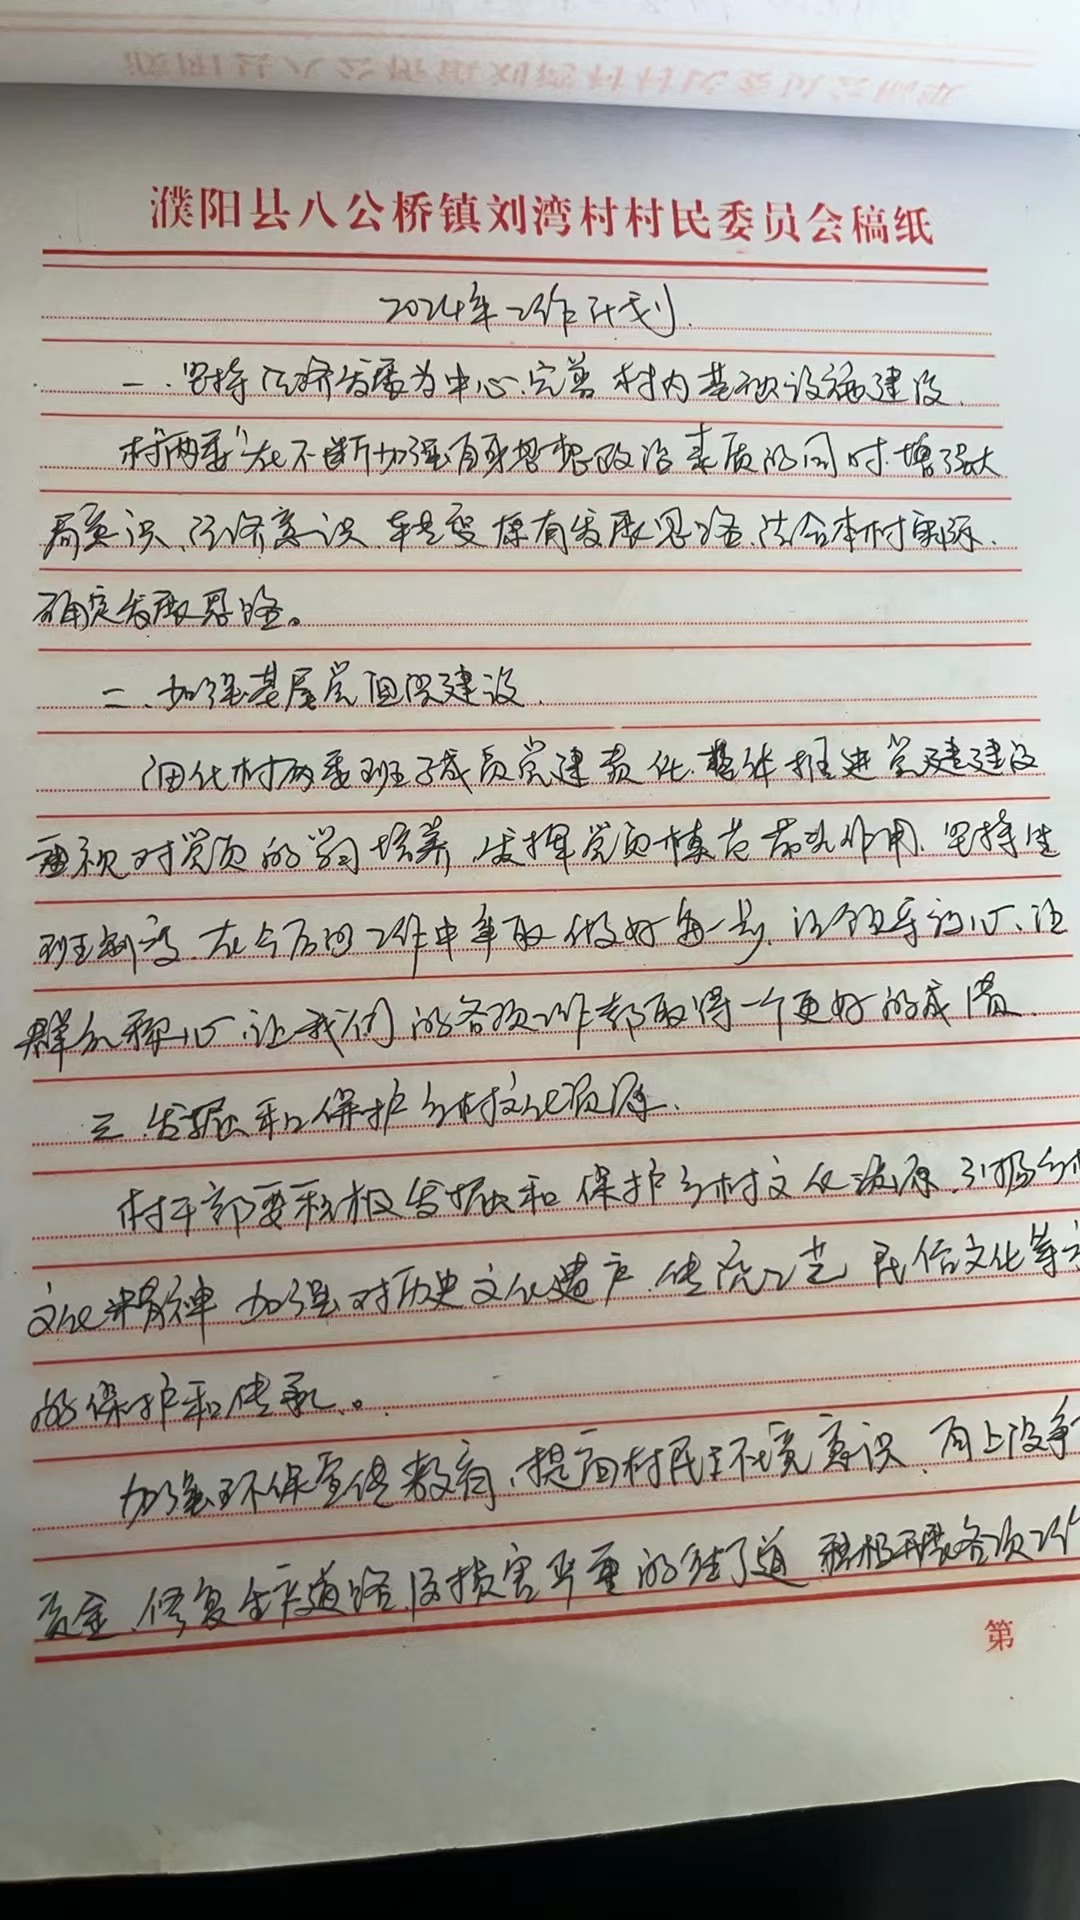 濮阳县八公桥镇刘湾村村民委员会稿纸
2024年工作计划.
一.坚持经济发展为中心、完善村内基础设施建设.
村"两委"在不断加强自身思想政治素质的同时.增强大
局意识、经济意识.转变原有发展思路.结合本村实际.
确定发展思路。
二、加强基层党组织建设.
细化村两委班子成员党建责任.整体推进党建建设
重视对党员的学习培养.发挥党员模范带头作用.坚持坐
班制度.在今后的工作中争取做好每一步.让领导放心、让
群众称心.让我们的各项工作都取得一个更好的成绩.
三.发掘和保护乡村文化资源.
村干部要积极发掘和保护乡村文化资源.引扬乡村
文化精神 加强对历史文化遗产.传统工艺 民俗文化等方
的保护和传承。
加强环保宣传教育.提高村民环境意识.向上级争
资金.修复生产道路.及损害严重的街道 积极开展各项工作
第